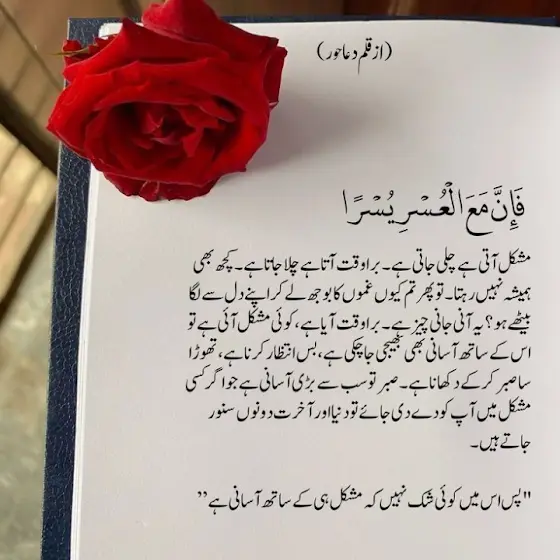 (از قلم دعا حور)
فَإِنَّ مَعَ الْعُسْرِ يُسْرًا
مشکل آتی ہے چلی جاتی ہے۔ برا وقت آتا ہے چلا جاتا ہے۔ کچھ بھی
ہمیشہ نہیں رہتا۔ تو پھر تم کیوں غموں کا بوجھ لے کر اپنے دل سے لگا
بیٹھے ہو؟ یہ آنی جانی چیز ہے۔ برا وقت آیا ہے، کوئی مشکل آئی ہے تو
اس کے ساتھ آسانی بھی بھیجی جا چکی ہے، بس انتظار کرنا ہے، تھوڑا
سا صبر کر کے دکھانا ہے۔ صبر تو سب سے بڑی آسانی ہے جو اگر کسی
مشکل میں آپ کو دے دی جائے تو دنیا اور آخرت دونوں سنور
جاتے ہیں۔
"پس اس میں کوئی شک نہیں کہ مشکل ہی کے ساتھ آسانی ہے”